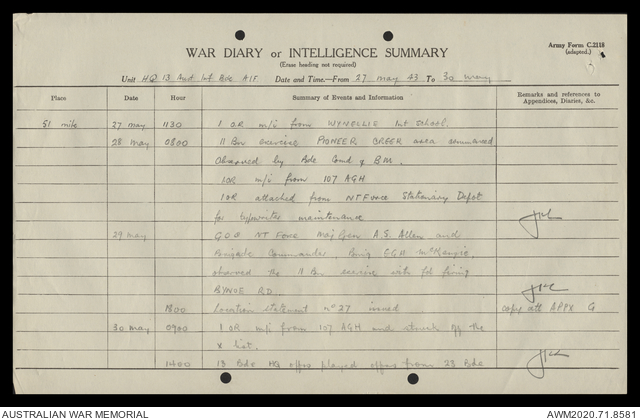 Army Form C.2118
(adapted.)
WAR DIARY or INTELLIGENCE SUMMARY
(Erase heading not required)
Unit HQ 13 Aust Inf Bde AIF Date and Time.—From 27 May 43 To 30 May
Place Date Hour Summary of Events and Information Remarks and references to Appendices, Diaries, &c.
51 mile 27 May 1130 1 OR m/i from WYNELLIE Int School.
28 May 0800 11 Bn exercise PIONEER CREEK area commenced
Observed by Bde Comd & BM.
1 OR m/i from 107 AGH
1 OR attached from NT Force Stationary Depot
for typewriter maintenance
29 May GOC NT Force Maj Gen A.S. Allen and
Brigade Commander Brig EGH McKenzie
observed the 11 Bn exercise with fd firing
BYNOE RD.
1800 Location statement no 27 issued copy att APPX G
30 May 0900 1 OR m/i from 107 AGH and struck off the
X list.
1400 13 Bde HQ offrs played offrs from 23 Bde
AUSTRALIAN WAR MEMORIAL AWM2020.71.8581